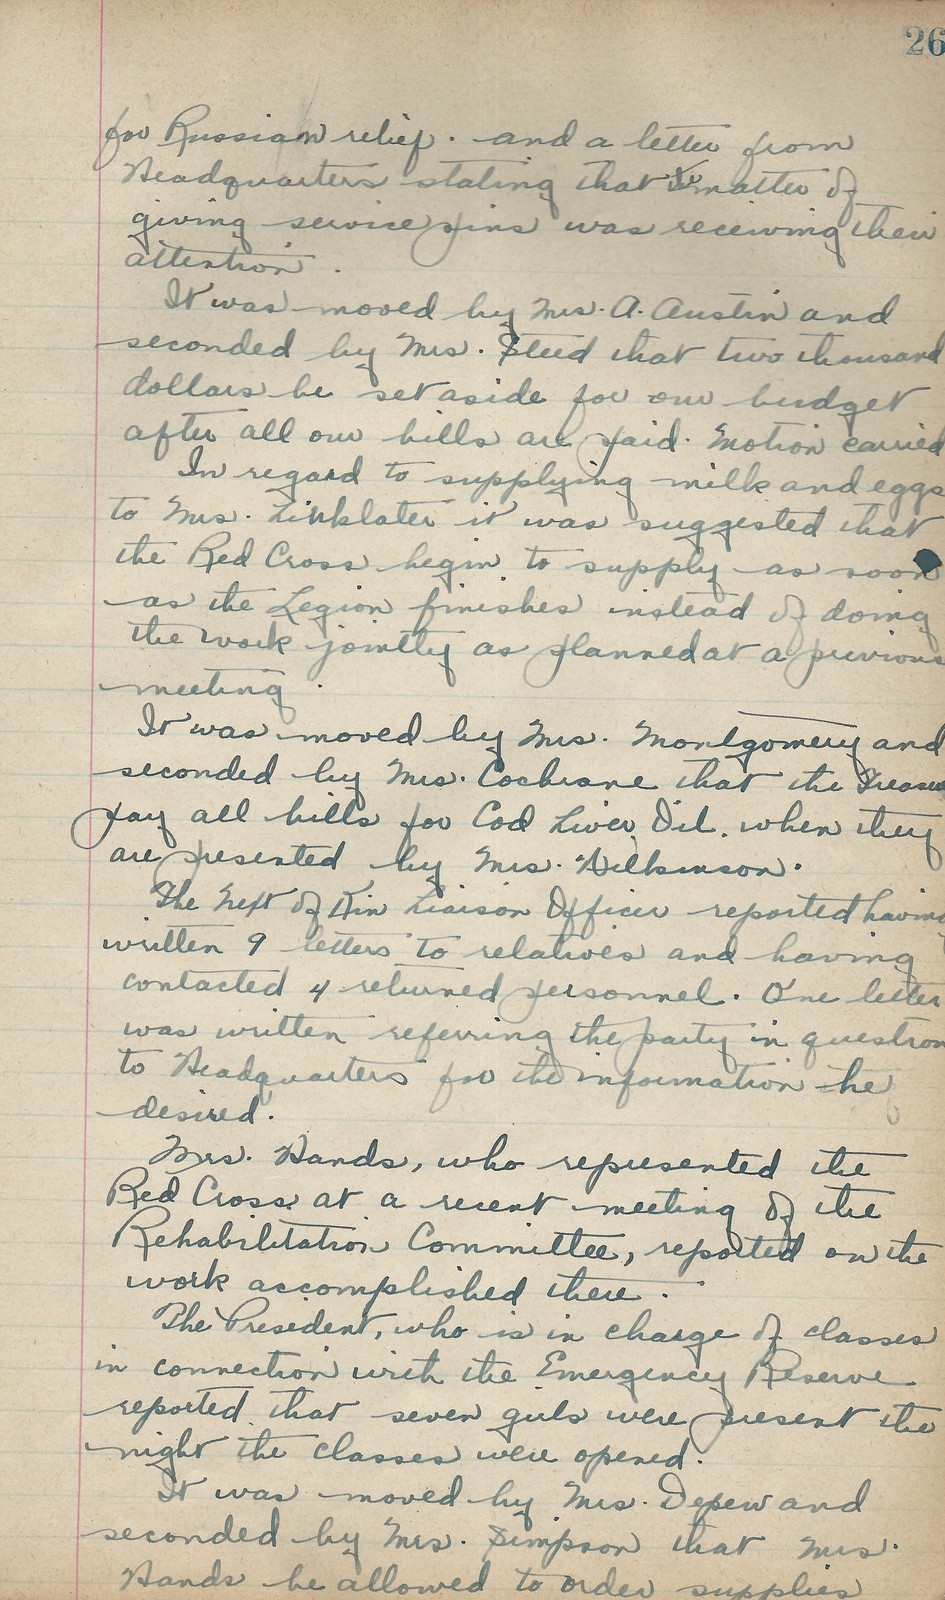 26
for Russian relief. and a letter from
Headquarters stating that the matter of
giving service pins was receiving their
attention.
It was moved by Mrs. A. Austin and
seconded by Mrs. Steed that two thousand
dollars be set aside for our budget
after all our bills are paid. Motion carried
In regard to supplying milk and eggs
to Mrs. Linklater it was suggested that
the Red Cross begin to supply as soon
as the Legion finishes instead of doing
the work jointly as planned at a previous
meeting.
It was moved by Mrs. Montgomery and
seconded by Mrs. Cochrane that the Treasu
pay all bills for Cod Liver Oil. when they
are presented by Mrs. Wilkinson.
The Next of Kin Liaison Officer reported having
written 9 letters to relatives and having
contacted 4 returned personnel. One letter
was written referring the party in question
to Headquarters for the information he
desired.
Mrs. Hands, who represented the
Red Cross at a recent meeting of the
Rehabilitation Committee, reported on the
work accomplished there.
The President, who is in charge of classes
in connection with the Emergency Reserve
reported that seven girls were present the
night the classes were opened.
It was moved by Mrs. Depew and
seconded by Mrs. Simpson that Mrs.
Hands be allowed to order supplies